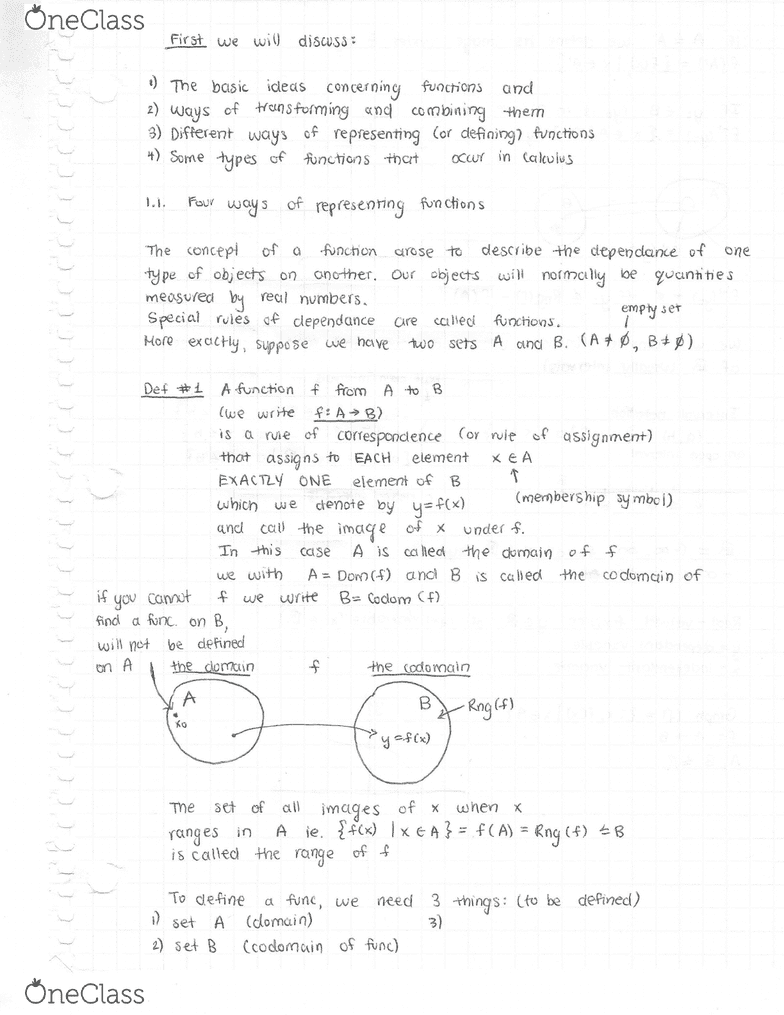 OneClass
First we will discuss:
1) The basic ideas concerning functions and
2) Ways of transforming and combining them
3) Different ways of representing (or defining) functions
4) Some types of functions that occur in calculus
1.1. Four ways of representing functions
The concept of a function arose to describe the dependance of one
type of objects on another. Our objects will normally be quantities
measured by real numbers.
empty set
Special rules of dependance are called functions.
More exactly, suppose we have two sets A and B. (A ≠ ∅, B ≠ ∅)
Def #1 A function f from A to B
(we write f: A → B)
is a rule of correspondence (or rule of assignment)
that assigns to EACH element x ∈ A
EXACTLY ONE element of B
which we denote by y = f(x) (membership symbol)
and call the image of x under f.
In this case A is called the domain of f
we with A = Dom(f) and B is called the codomain of
f we write B = Codom (f)
if you cannot
find a func. on B,
will not be defined
on A
the domain f the codomain
A B Rng(f)
x₀
y = f(x)
The set of all images of x when x
ranges in A ie. {f(x) | x ∈ A} = f(A) = Rng(f) ⊆ B
is called the range of f
To define a func, we need 3 things: (to be defined)
1) set A (domain) 3)
2) set B (codomain of func)
OneClass